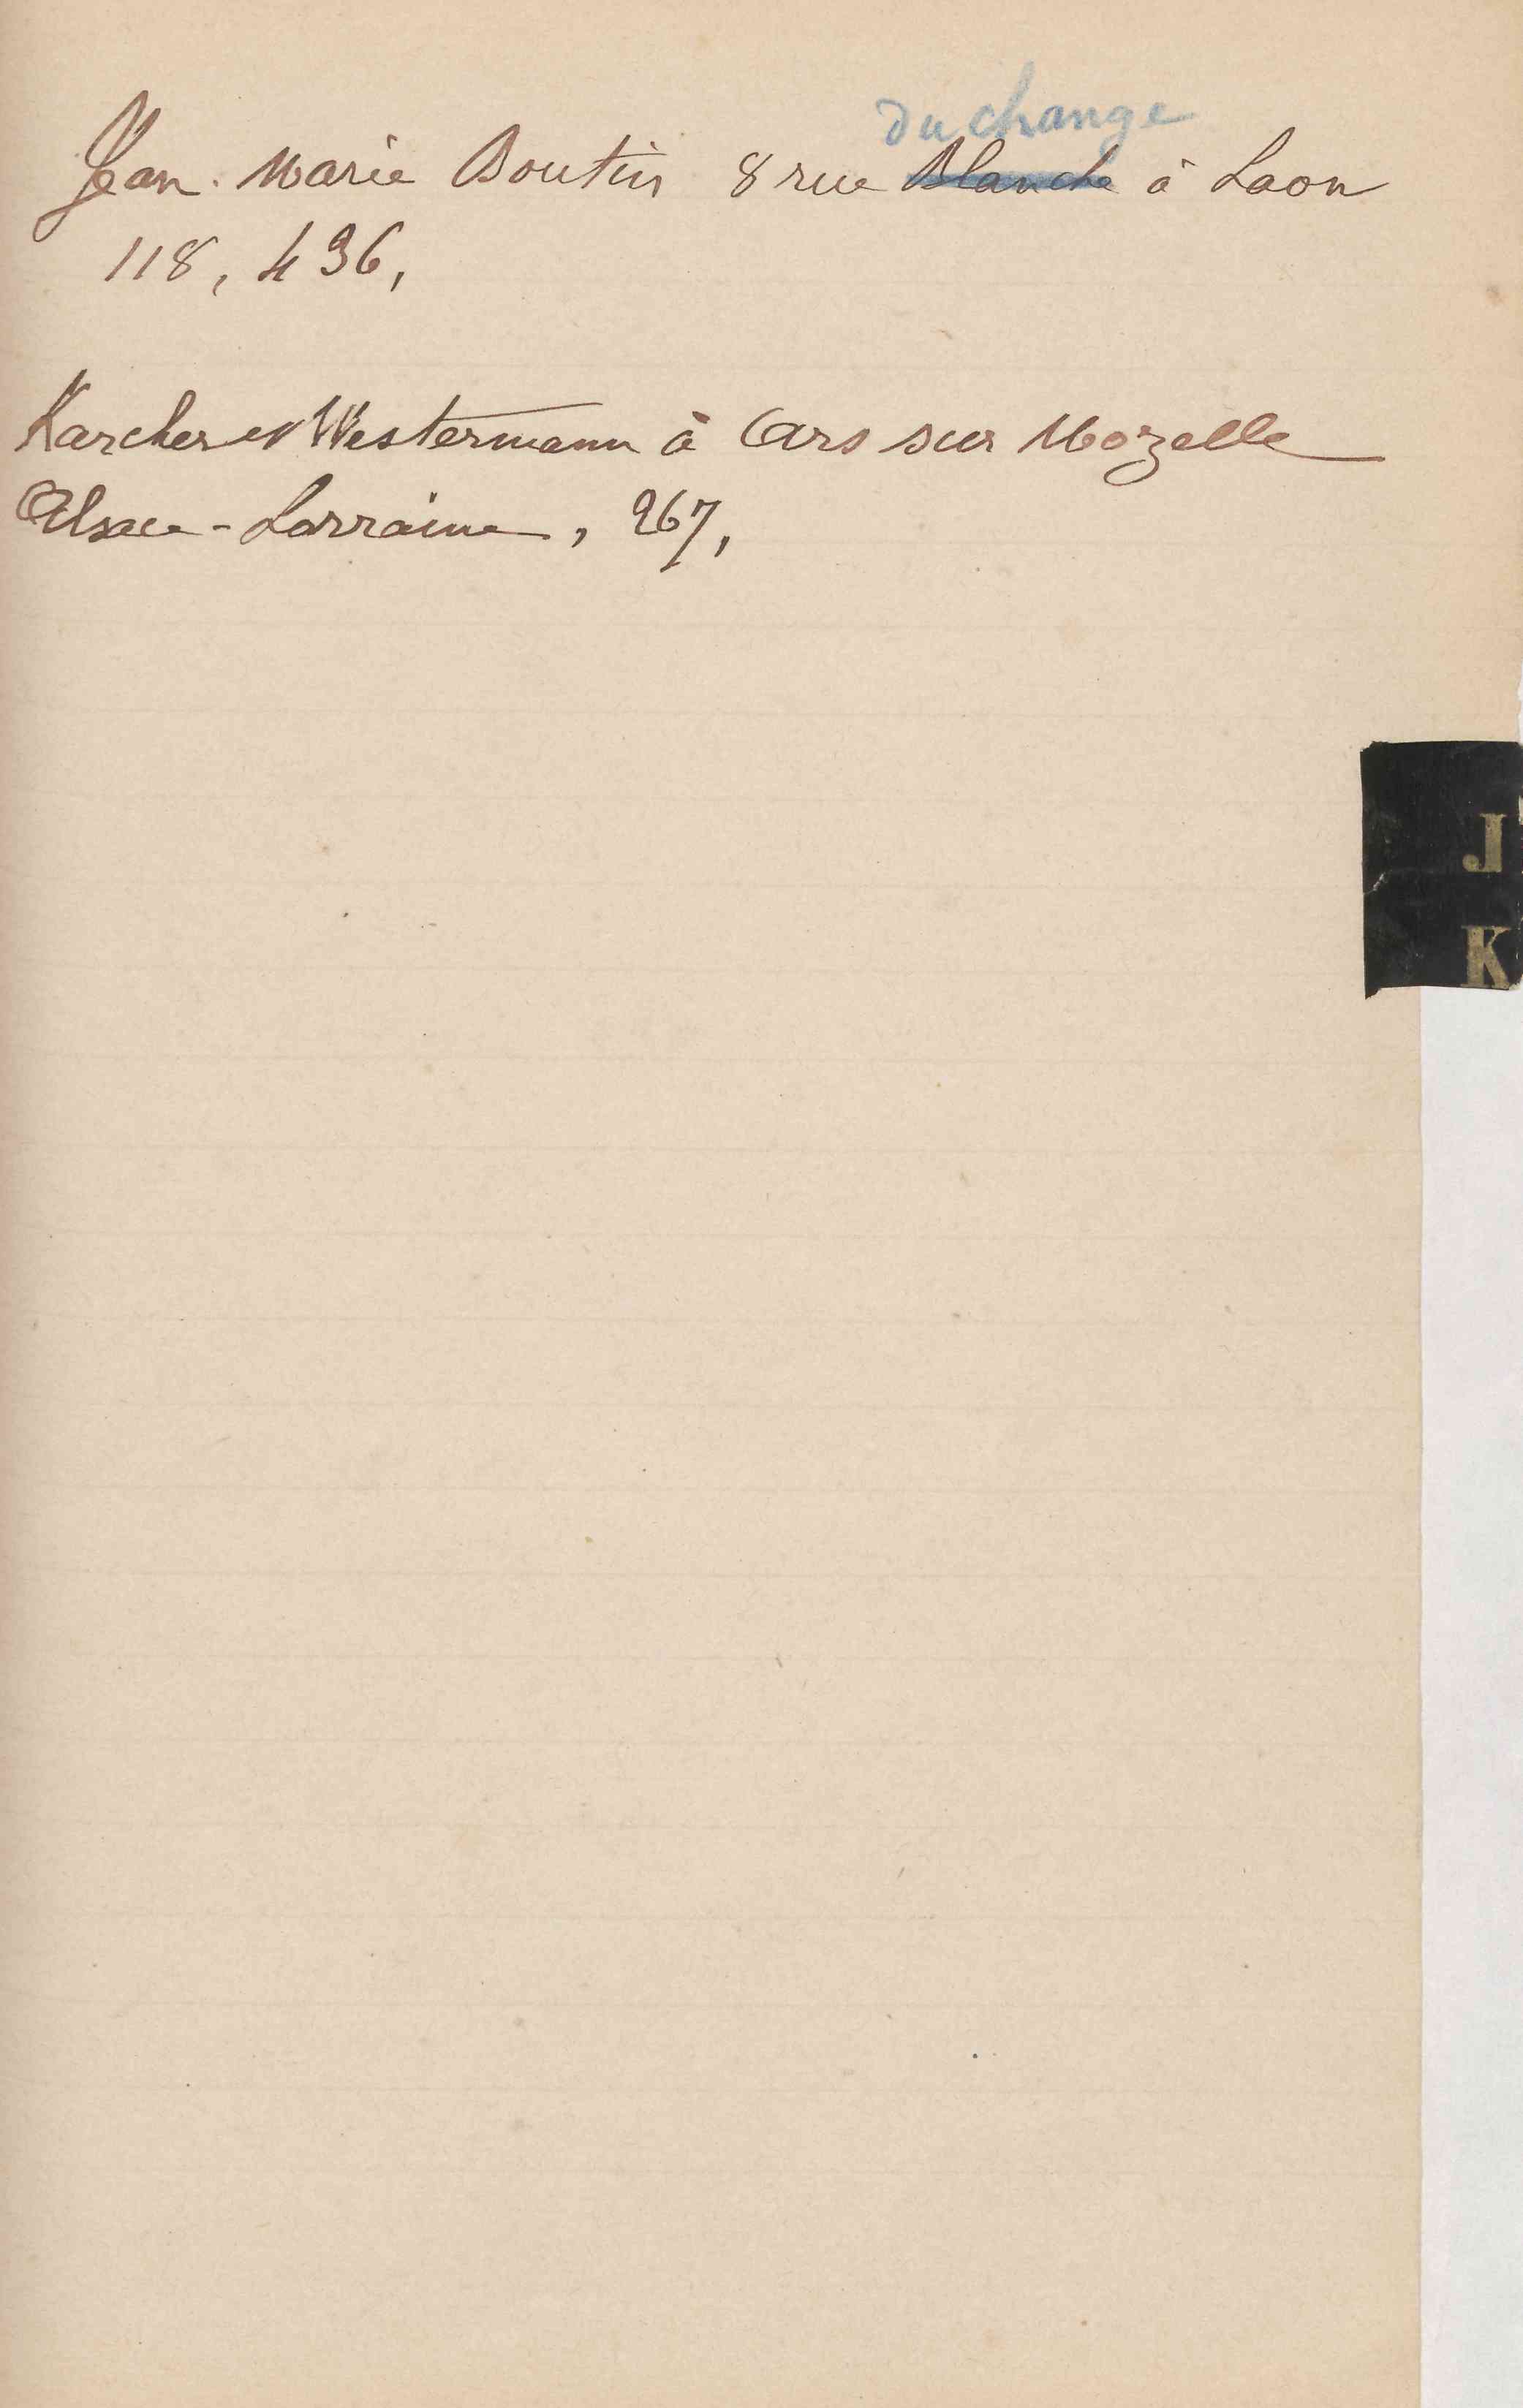 du change
Jean. Marie Boutin 8 rue Blanche à Laon
118, 436,
Karcher et Westermann à Ars sur Mozelle
Alsace-Lorraine, 267,
J
K